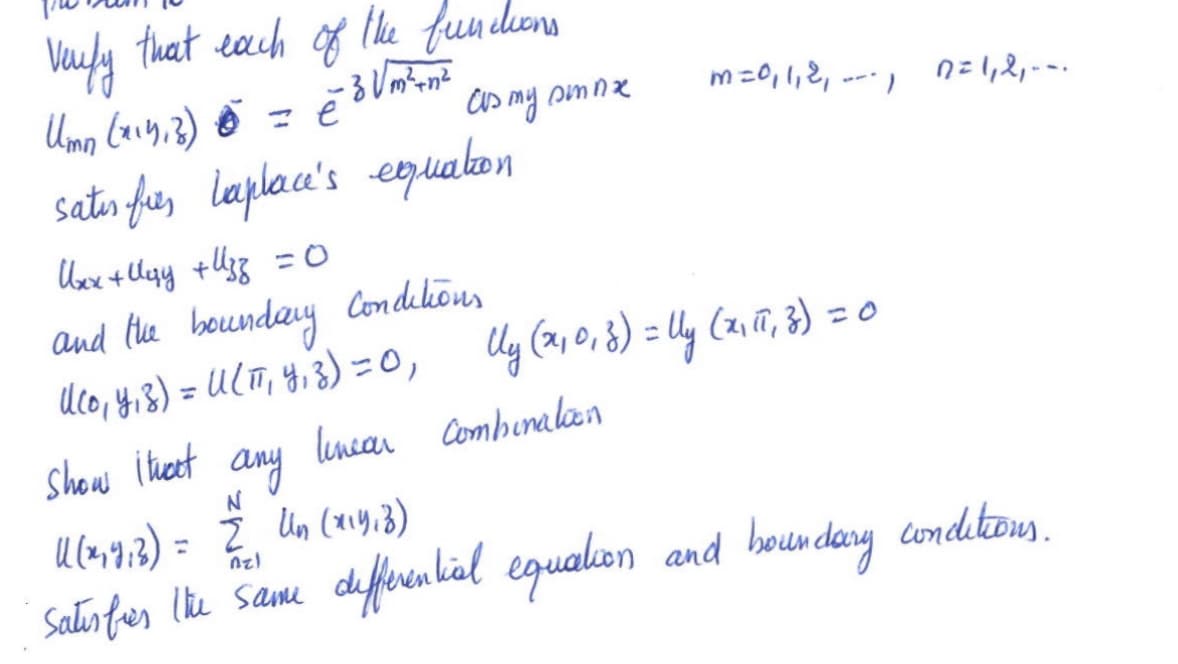 Verify that each of the functions
Umn (x,y,z) = e^{-z√(m²+n²)} cos my sin nx m=0,1,2, ...., n=1,2,...
satisfies Laplace's equation
Uxx + Uyy + Uzz = 0
and the boundary Conditions
U(0,y,z) = U(π, y,z) = 0, Uy (x,0,z) = Uy (x,π,z) = 0
Show that any linear Combination
U(x,y,z) = Σ_{n=1}^{N} Un (x,y,z)
Satisfies the same differential equation and boundary conditions.